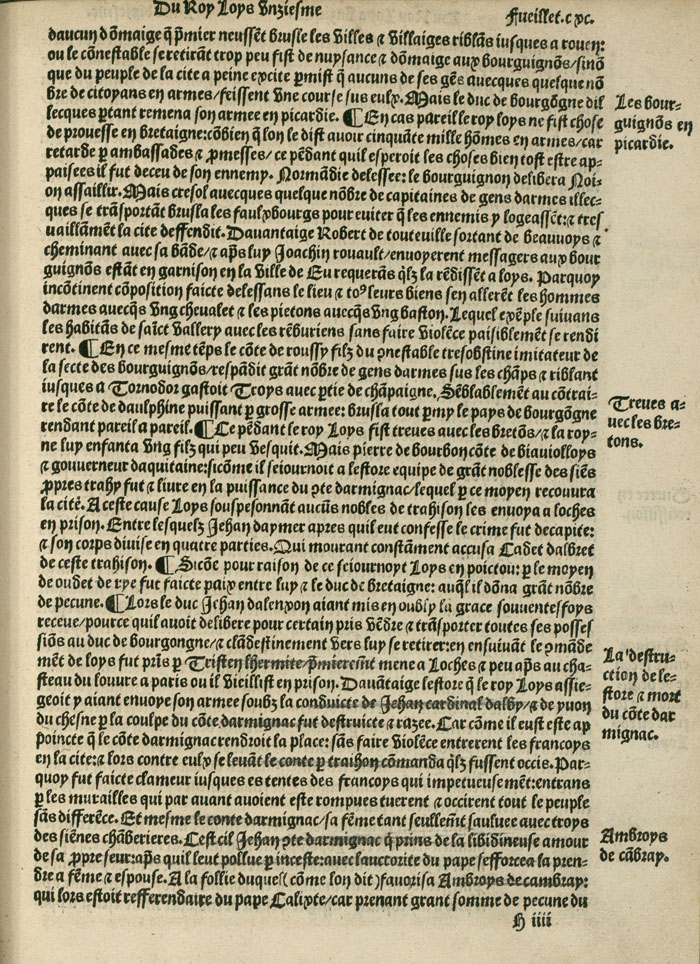 Du Roy Loys Unziesme
Fueillet.c xc.
daucun dõmaige q̃ p̃mier neussẽt brusle les Villes & Villaiges riblãs iusques a rouen:
ou le cõnestable se retirãt trop peu fist de nuysance & dõmaige aux bourguignõs/sinõ
que du peuple de la cite a peine excite p̃mist q̃ aucuns de ses gẽs avecques quelque nõ
bre de citoyans en armes/feissent Une course sus eulx. Mais le duc de bourgõgne dil
lecques p̃tant remena son armee en picardie. ¶ En cas pareil le roy loys ne fist chose
de prouesse en bretaigne:cõbien q̃ lon le dist avoir cinquãte mille hõmes en armes/car
retarde p̃ ambassades & p̃messes/ce pẽdant quil esperoit les choses bien tost estre ap-
paisees il fut deceu de son ennemy. Normãdie delessee: le bourguignon delibera Noi-
on assaillir. Mais cresol avecques quelque nõbre de capitaines de gens darmes illec-
ques se trãsportãt brusla les faulxbourgs pour eviter q̃ les ennemis y logeassẽt:& tres
vaillãmẽt la cite deffendit. Davantaige Robert de touteville sortant de beauvoys &
cheminant avec sa bãde/& aps̃ luy Joachin rouault/envoyerent messagers aux bour
guignõs estãt en garnison en la Ville de Eu requerãs q̃lz la rẽdissẽt a loys. Parquoy
incõtinent cõposition faicte delessans le lieu & to⁹ leurs biens sen allerẽt les hommes
darmes avecq̃s Ung chevalet & les pietons avecq̃s Ung baston. Lequel exẽple suivans
les habitãs de saĩct Vallery avec les rẽburiens sans faire Violẽce paisiblemẽt se rendi
rent. ¶ En ce mesme tẽps le cõte de roussy filz du ꝯnestable tresobstine imitateur de
la secte des bourguignõs/respãdit grãt nõbre de gens darmes sus les chãps & riblant
iusques a Tornodor gastoit Troys avec p̃tie de chãpaigne. Sẽblablemẽt au cõtrai-
re le cõte de daulphine puissant p̃ grosse armee: brusla tout p̃my le pays de bourgõgne
rendant pareil a pareil. ¶ Ce pẽdant le roy Loys fist treves avec les bretõs/& la roy-
ne luy enfanta Ung filz qui peu Vesquit. Mais pierre de bourbon cõte de biaviolloys
& gouverneur daquitaine:sicõme il seiournoit a lestore equipe de grãt noblesse des siẽs
p̃pres trahy fut & livre en la puissance du ꝯte darmignac/lequel p̃ ce moyen recouvra
la cite. A ceste cause Loys souspesonnãt aucuns nobles de trahison les envoya a loches
en prison. Entre lesquelz Jehan daymer apres quil eut confesse le crime fut decapite:
& son corps divise en quatre parties. Qui mourant constãment accusa Cadet dalbret
de ceste trahison. ¶ Sicõe pour raison de ce seiournoyt Loys en poictou: p̃ le moyen
de oudet de rye fut faicte paix entre luy & le duc de bretaigne: auq̃l il dõna grãt nõbre
de pecune. ¶ Lors le duc Jehan dalenxon aiant mis en oubly la grace souventesfoys
receue/pource quil avoit delibere pour certain pris vẽdre & trãsporter toutes ses posses
siõs au duc de bourgongne/& clãdestinement vers luy se retirer:en suivant le ꝯmãde
mẽt de loys fut prĩs p̃ Tristen lhermite/p̃mieremẽt mene a Loches & peu aps̃ au cha-
steau du louvre a paris ou il vieillist en prison. Davãtaige lestore q̃ le roy Loys assie-
geoit y aiant envoye son armee soubz la conduicte de Jehan cardinal dalby/& de yvon
du chesne p̃ la coulpe du cõte darmignac fut destruicte & razee. Car cõme il eust este ap
poincte q̃ le cõte darmignac rendroit la place: sãs faire violẽce entrerent les francoys
en la cite:& lors contre eulx se levãt le conte p̃ traihon cõmanda q̃lz fussent occis. Par-
quoy fut faicte clameur iusques es tentes des francoys qui impetueusemẽt:entrans
p̃ les murailles qui par avant avoient este rompues tuerent & occirent tout le peuple
sãs differẽce. Et mesme le conte darmignac/sa fẽme tant seullemẽt saulvee avec troys
des siẽnes chãberieres. Cest cil Jehan ꝯte darmignac q̃ prins de la libidineuse amour
de sa p̃pre seur:aps̃ quil leut pollue p̃ inceste:avec lauctorite du pape sefforcea la pren-
dre a fẽme & espouse. A la follie duquel( cõme lon dit )favorisa Ambroys de cambray:
qui lors estoit refferendaire du pape Calixte/car prenant grant somme de pecune du
H iiii
Les bour-
guignõs en
picardie.
Treves a-
vec les bre-
tons.
La destru-
ction de le-
store & mort
du cõte dar
mignac.
Ambroys
de cãbray.